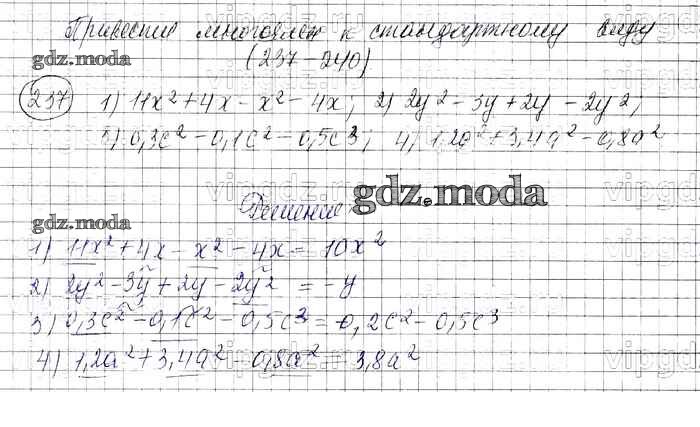 Привести многочлен к стандартному виду
gdz.moda
(237-240)
237 1) 11x²+4x-x²-4x; 2) 2y²-3y+2y-2y²;
3) 0,3c²-0,1c²-0,5c³; 4) 1,2a²+3,4a²-0,8a²
vipgdz.ru
gdz.moda
Решение
gdz.moda
1) 11x²+4x-x²-4x=10x²
2) 2y²-3y+2y-2y²=-y
3) 0,3c²-0,1c²-0,5c³=0,2c²-0,5c³
4) 1,2a²+3,4a² 0,8a² 3,8a²